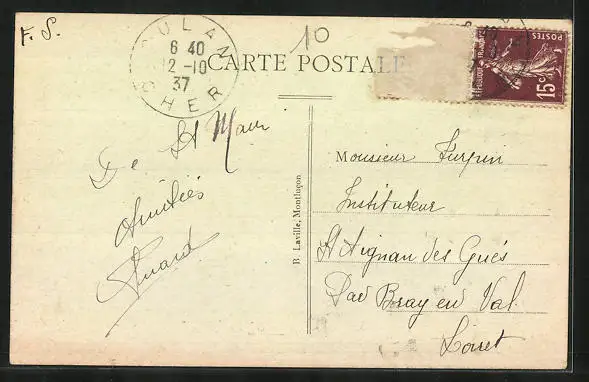 F. S.
10
OULAN
6 40
12-10
37
CHER
CARTE POSTALE
POSTES
RÉPUBLIQUE FRANÇAISE
15c
De St Maur
Amitiés
B. Laville, Montluçon
Monsieur Turpin
Instituteur
St Aignan des Gués
Par Bray en Val
Loiret